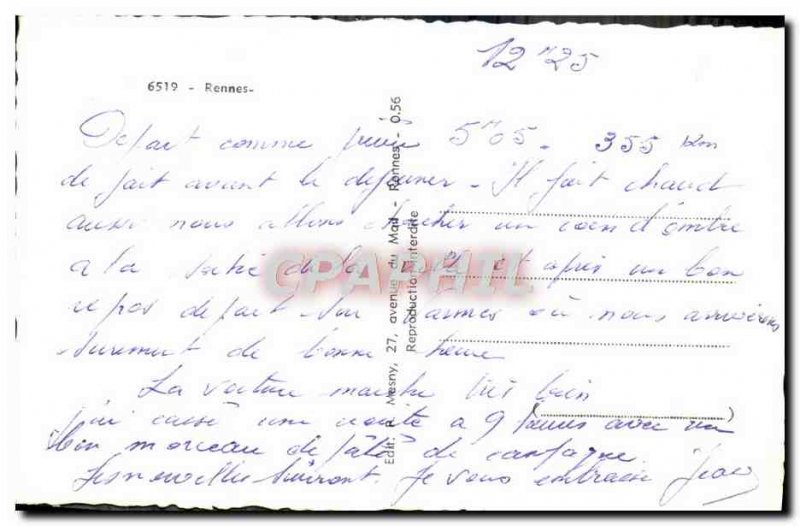 12 H 25
6519 - Rennes-
Départ comme prévu 5H05. 355 km
de fait avant le déjeuner - Il fait chaud
aussi nous allons chercher un coin d'ombre
à la sortie de la ville et après un bon
repos départ sur Vannes où nous arriverons
surement de bonne heure
La voiture marche très bien
j'ai cassé une croûte à 9 heures avec un
bon morceau de pâté de campagne.
Les nouvelles suivront. Je vous embrasse Jean
Edit. P. Mesny, 27, avenue du Mail - Rennes - 0.56
Reproduction interdite
CPAPHIL